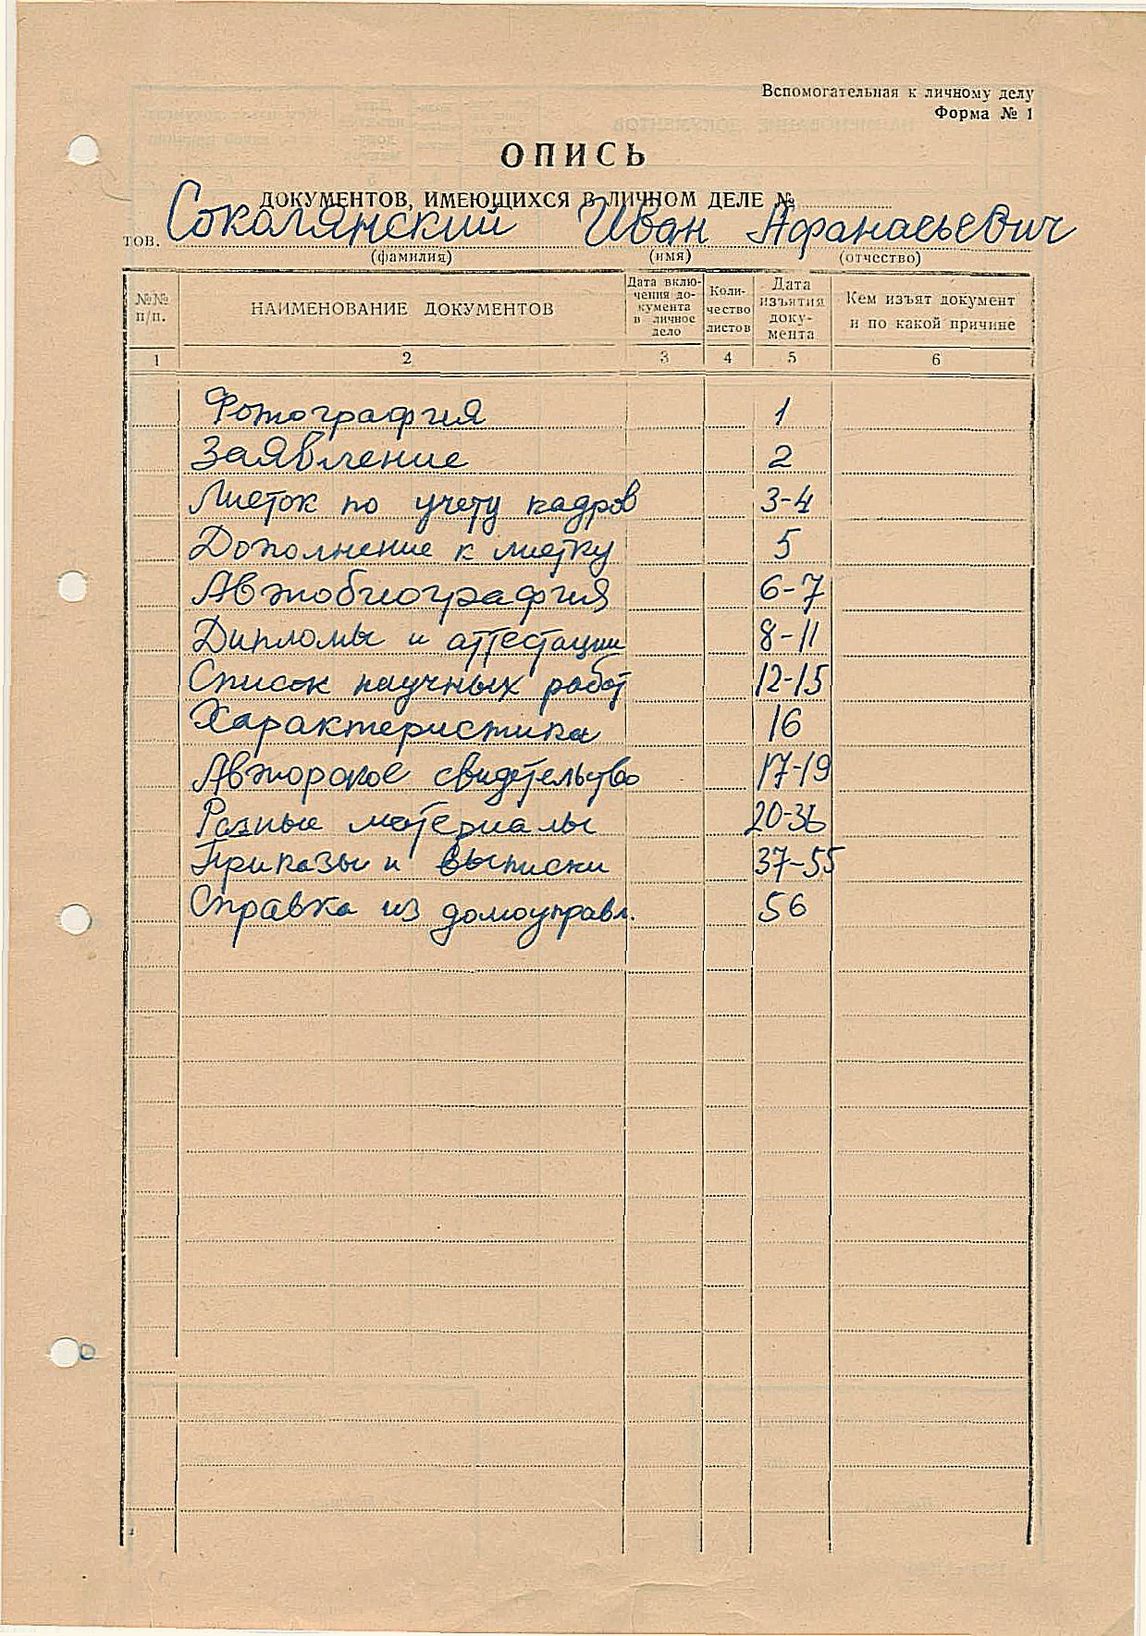 Вспомогательная к личному делу
Форма № 1
ОПИСЬ
ДОКУМЕНТОВ, ИМЕЮЩИХСЯ В ЛИЧНОМ ДЕЛЕ №
тов. Соколянский Иван Афанасьевич
(фамилия) (имя) (отчество)
№№ п/п. НАИМЕНОВАНИЕ ДОКУМЕНТОВ Дата включения документа в личное дело Количество листов Дата изъятия документа Кем изъят документ и по какой причине
1 2 3 4 5 6
Фотография 1
Заявление 2
Листок по учету кадров 3-4
Дополнение к листку 5
Автобиография 6-7
Дипломы и аттестации 8-11
Список научных работ 12-15
Характеристика 16
Авторское свидетельство 17-19
Разные материалы 20-36
Приказы и выписки 37-55
Справка из домоуправл. 56